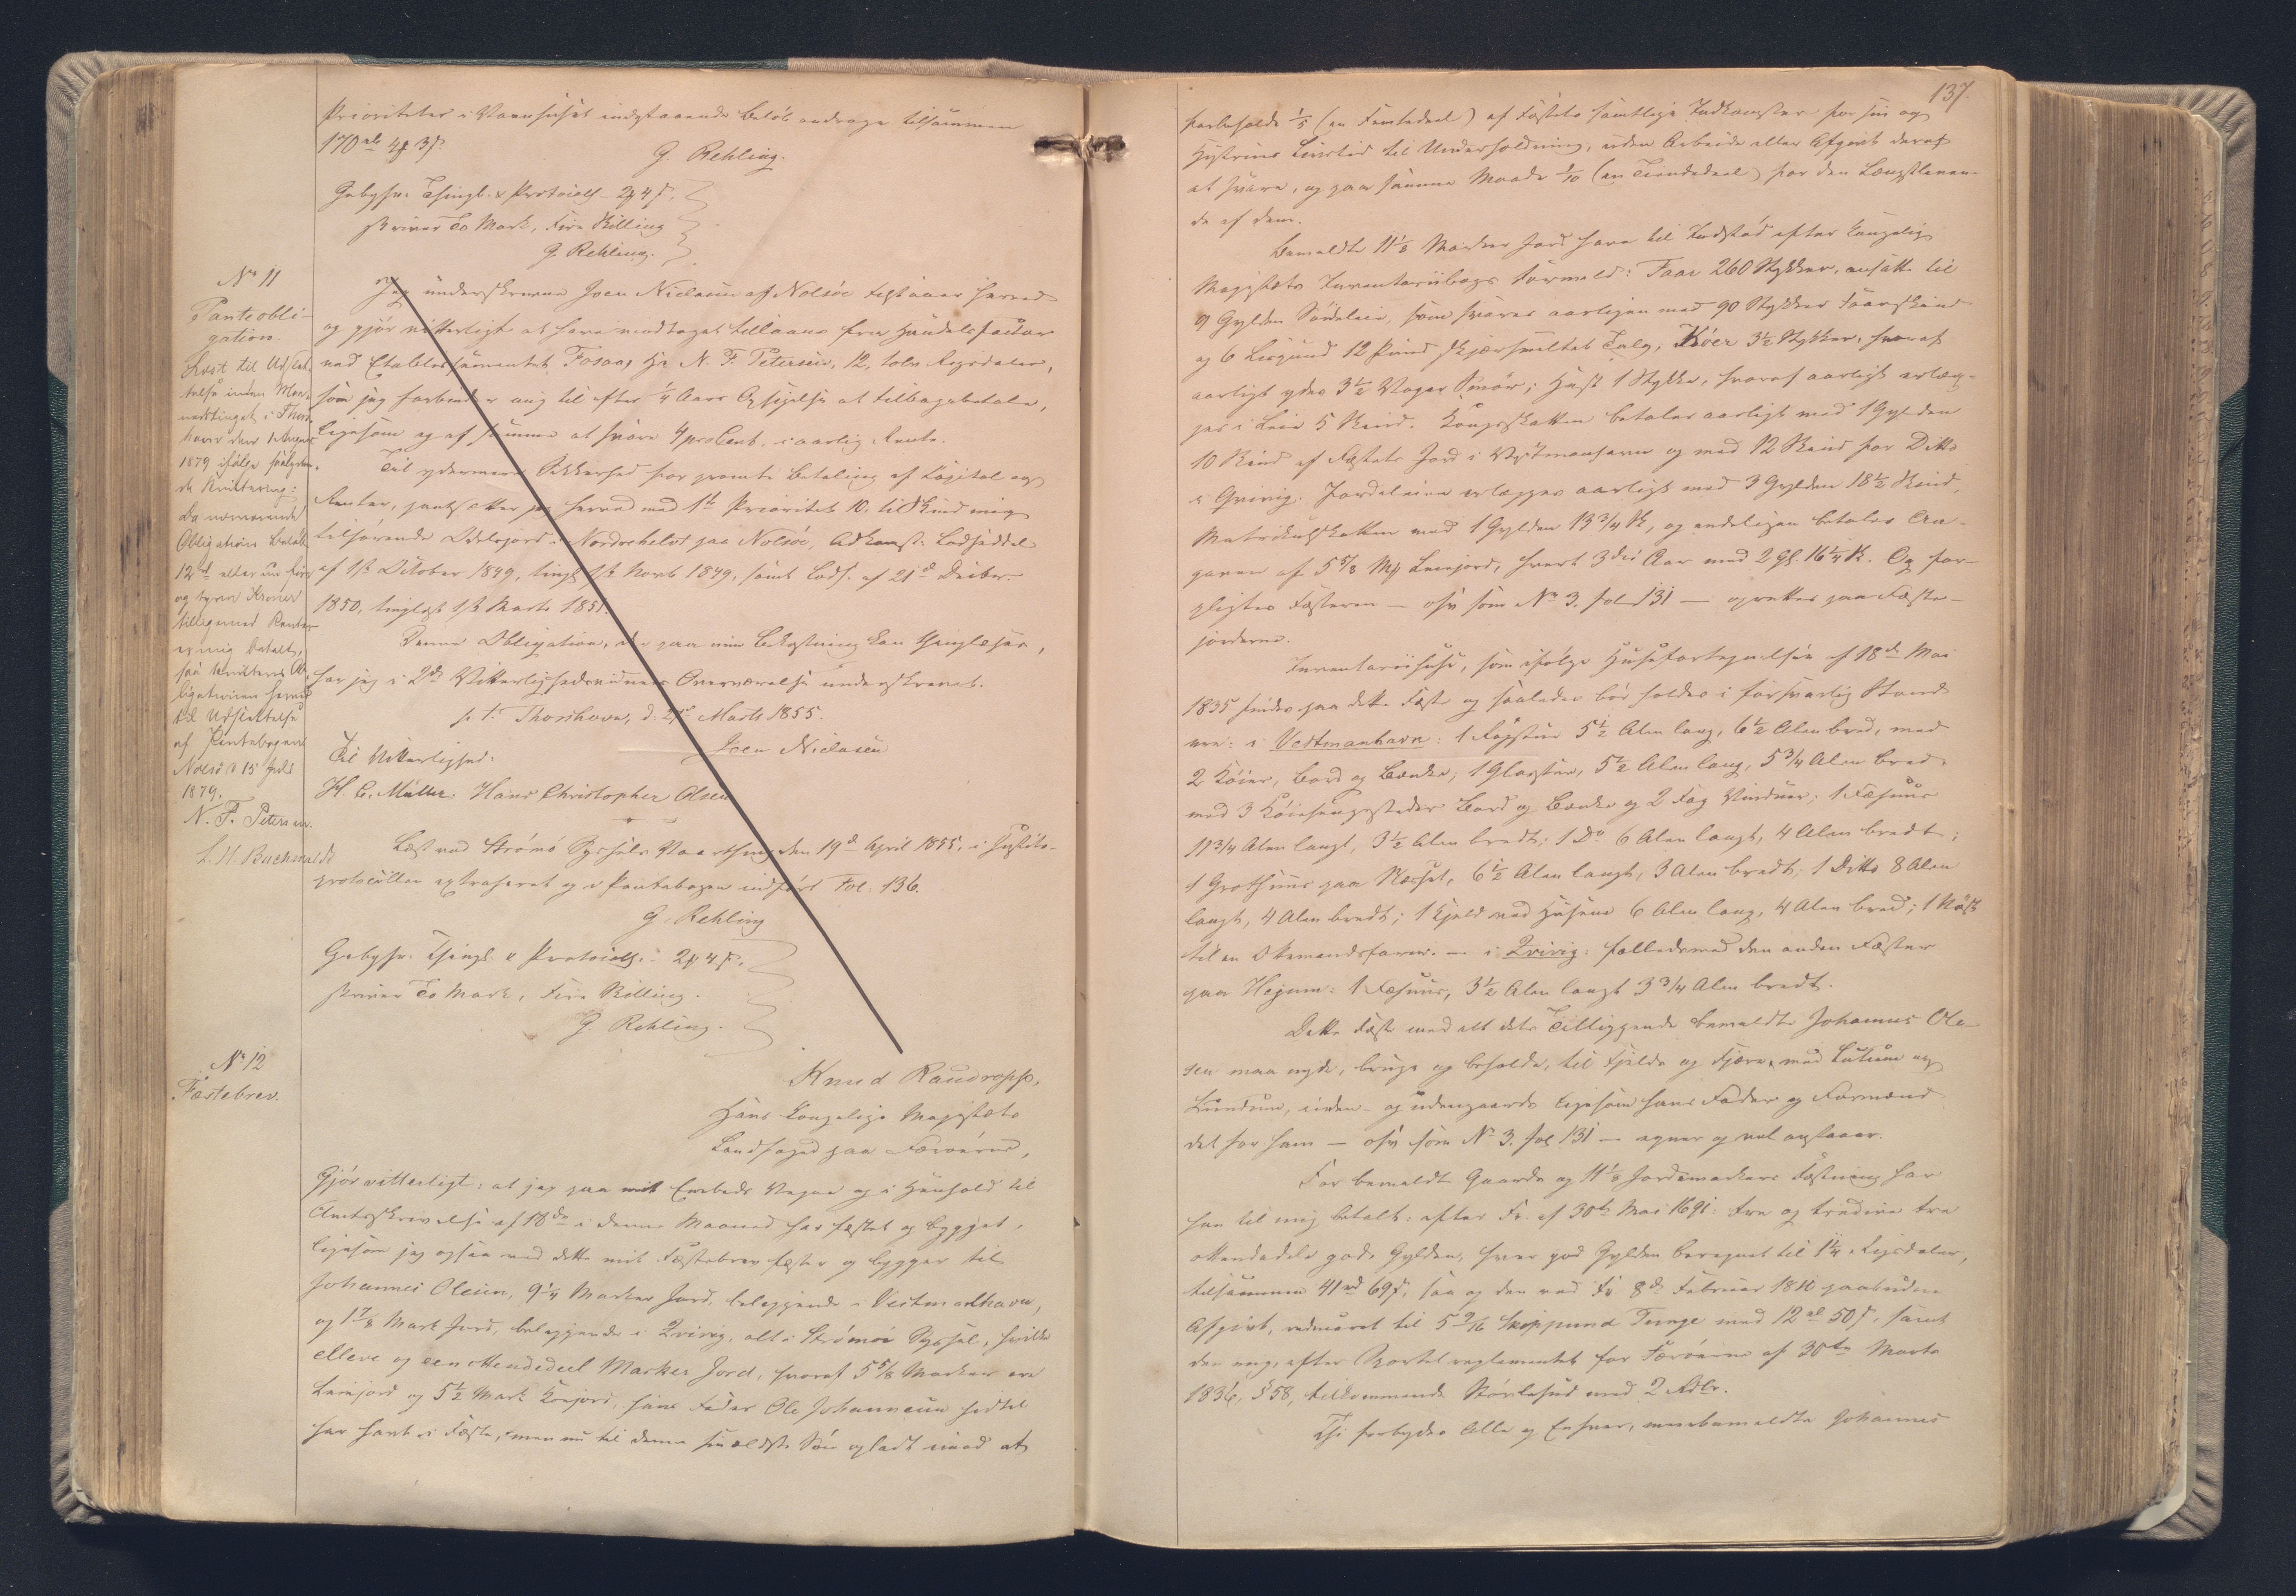 Prioriteter i Vaanhuset indestaaende Beløb andrage tilsammen
170 rd 4 ƒ 3 s.
G. Rehling.
Gebyhr: Thingl. & Protocoll. 2 ƒ 4 s.
skriver To Mark, Fire Skilling
G. Rehling.
No 11
Panteobli-
gation.
Læst til Udslet-
telse inden
i Thors-
havn den 1 August
1879 ifølge følgen-
de Kvittering:
Da nærværende
Obligations Beløb
12 rd eller fire
og tyve Kroner
tilligemed Renter
er mig betalt,
saa kvitteres Ob-
ligationen herved
til Udslettelse
af Pantebogen
Nolsø d 15 Juli
1879.
N. F. Petersen.
L. H. Buchwaldt
Jeg underskrevne Joen Niclasen af Nolsöe tilstaaer herved
og gjör vitterligt at have modtaget tillaans fra Handelsfactor
ved Etablissementet Fosaas Hr N. F. Petersen, 12, tolv Rigsdaler,
som jeg forbinder mig til efter 1/4 Aars Opsigelse at tilbagebetale,
ligesom og af samme at svare 4 proCent. i aarlig Rente.
Til ydermere Sikkerhed for promte Betaling af Capital og
Renter, pantsætter jeg herved med 1te Prioritet 10. til Skind mig
tilhørende Odelsjord i Nordrehelvt paa Nolsöe, Adkomst: Lodseddel
af 1ste October 1849, tingl. 1ste Novb 1849, samt Lods. af 21de Decbr
1850, tinglæst 1ste Marts 1851.
Denne Obligation, der paa min Bekostning kan thinglæses,
har jeg i 2de Vitterlighedsvidners Overværelse underskrevet.
p. t. Thorshavn, d. 21de Marts 1855.
Joen Niclasen
Til Vitterlighed:
H. C. Müller. Hans Christopher Olsen
Læst ved Strömö Syssels Vaarthing den 19de April 1855, i Justits-
protocollen extraheret og i Pantebogen indført Fol: 136.
G. Rehling
Gebyhr. Thingl. & Protocoll. 2 ƒ 4 s.
skriver To Mark, Fire Skilling.
G. Rehling.
No 12
Fæstebrev.
Knud Raudropp,
Hans Kongelige Majestæts
Landfoged paa Færøerne,
Gjör vitterligt: at jeg paa mit Embeds Vegne og i Henhold til
Amtsskrivelse af 18de i denne Maaned har fæstet og bygget,
ligesom jeg ogsaa ved dette mit Fæstebrev fæster og bygger til
Johannes Olesen, 9 1/4 Marker Jord, beliggende i Vestmanhavn,
og 1 7/8 Mark Jord, beliggende i Qvivig, alt i Strömöe Syssel, hvilke
elleve og een ottendedeel Marker Jord, hvoraf 5 5/8 Marker ere
Leiejord og 5 1/2 Mark Konjord, hans Fader Ole Johannesen hidtil
har havt i Fæste, men nu til denne sin ældste Søn opladt imod at
137.
forbeholde 1/5 (en Femtedeel) af Fæstets samtlige Indkomster for sin og
Hustrues Livstid til Underholdning, uden Arbeide eller Afgivt deraf
at svare, og paa samme Maade 1/10 (en Tiendedeel) for den Længstleven-
de af dem.
Bemeldte 11 1/8 Marker Jord have til Indstød efter Kongelig
Majestæts Inventariibogs Formeld: Faar 260 Stykker, ansatte til
9 Gylden Søideleie, som svares aarligen med 90 Stykker Faarskind
og 6 Lispund 12 Pund skjærsmeltet Talg; Køer 3 1/2 Stykker, hvoraf
aarligt ydes 3 1/2 Voger Smør; Hest 1 Stykke, hvoraf aarligt erlæg-
ges i Leie 5 Skind. Kongsskatten betales aarligt med 1 Gylden
10 Skind af Fæstets Jord i Vestmanhavn og med 12 Skind for Ditto
i Qvivig. Jordeleien erlægges aarligt med 3 Gylden 18 1/2 Skind,
Matrikulskatten med 1 Gylden 13 3/4 Sk, og endeligen betales Ta-
gaven af 5 5/8 Mk Leiejord, hvert 3die Aar med 2 Gl. 16 1/4 Sk. Og for-
pligtes Fæsteren — osv som No 3. Fol 131 — oprettes paa Fæste-
jorderne.
Inventariihuse, som ifølge Husefortegnelsen af 18de Mai
1835 findes paa dette Fæste og saaledes bør holdes i forsvarlig Stand
ere: i Vestmanhavn: 1 Røgstue 5 1/2 Alen lang, 6 1/2 Alen bred, med
2 Köier, Bord og Bænke; 1 Glasstue, 5 1/2 Alen lang, 5 3/4 Alen bred.
med 3 Köiesengesteder Bord og Bænke og 2 Fag Vinduer; 1 Fæhuus
11 3/4 Alen langt, 3 1/2 Alen bredt; 1 Do 6 Alen langt, 4 Alen bredt;
1 Grothuus paa Næsset, 6 1/2 Alen langt, 3 Alen bredt; 1 Ditto 8 Alen
langt, 4 Alen bredt; 1 Hjeld ved Husene 6 Alen lang, 4 Alen bred; 1 Nøst
til en Ottemandsfarer. — i Qvivig: fælledsmed den anden Fæster
paa Hejgum: 1 Fæhuus, 3 1/2 Alen langt 3 3/4 Alen bredt.
Dette Fæste med alt dets Tilliggende bemeldte Johannes Ole-
sen maa nyde, bruge og beholde, til Fjelds og Fjære, med Lutum og
Lundum, inden- og udengaards ligesom hans Fader og Formænd
det for ham — osv som No 3. Fol 131 — egner og vel anstaaer.
For bemeldte Gaards og 11 1/8 Jordemarkers Fæstning har
han til mig betalt: efter Fr. af 30te Mai 1691: tre og tredive tre
ottendedele gode Gylden, hver god Gylden beregnet til 1 1/4 Rigsdaler,
tilsammen 41 rd 69 s, saa og den ved Fr 8de Februar 1810 paabudne
Afgivt, reduceret til 5 9/16 Skippund Tunge med 12 rd 50 s, samt
den mig, efter Sportelreglementet for Færøerne af 30te Marts
1836, § 58, tilkommende Skrivelseud med 2 Rdlr.
Thi forbydes Alle og Enhver, ennebemeldte Johannes